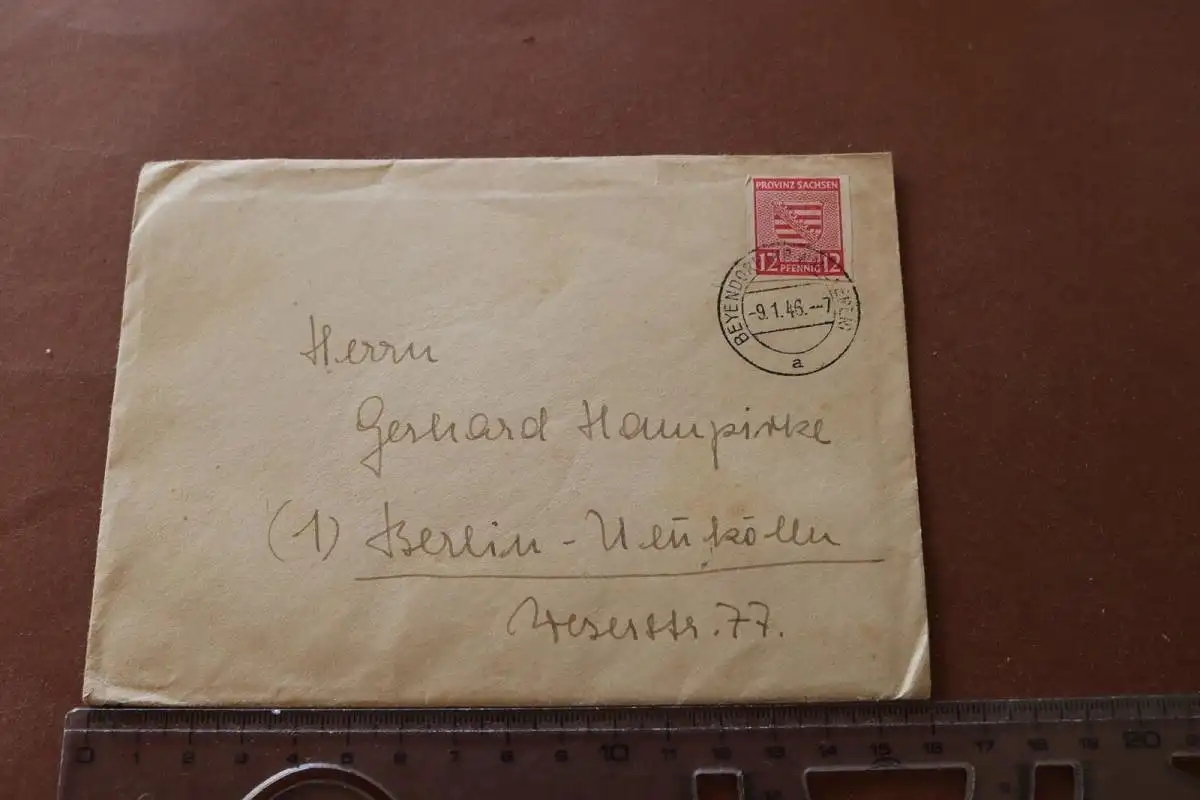 PROVINZ SACHSEN
12 PFENNIG 12
BEYENDORF
-9.1.46.--7
a
Herrn
Gerhard Hampirke
(1) Berlin-Neukölln
Weserstr. 77.
0 1 2 3 4 5 6 7 8 9 10 11 12 13 14 15 16 17 18 19 20